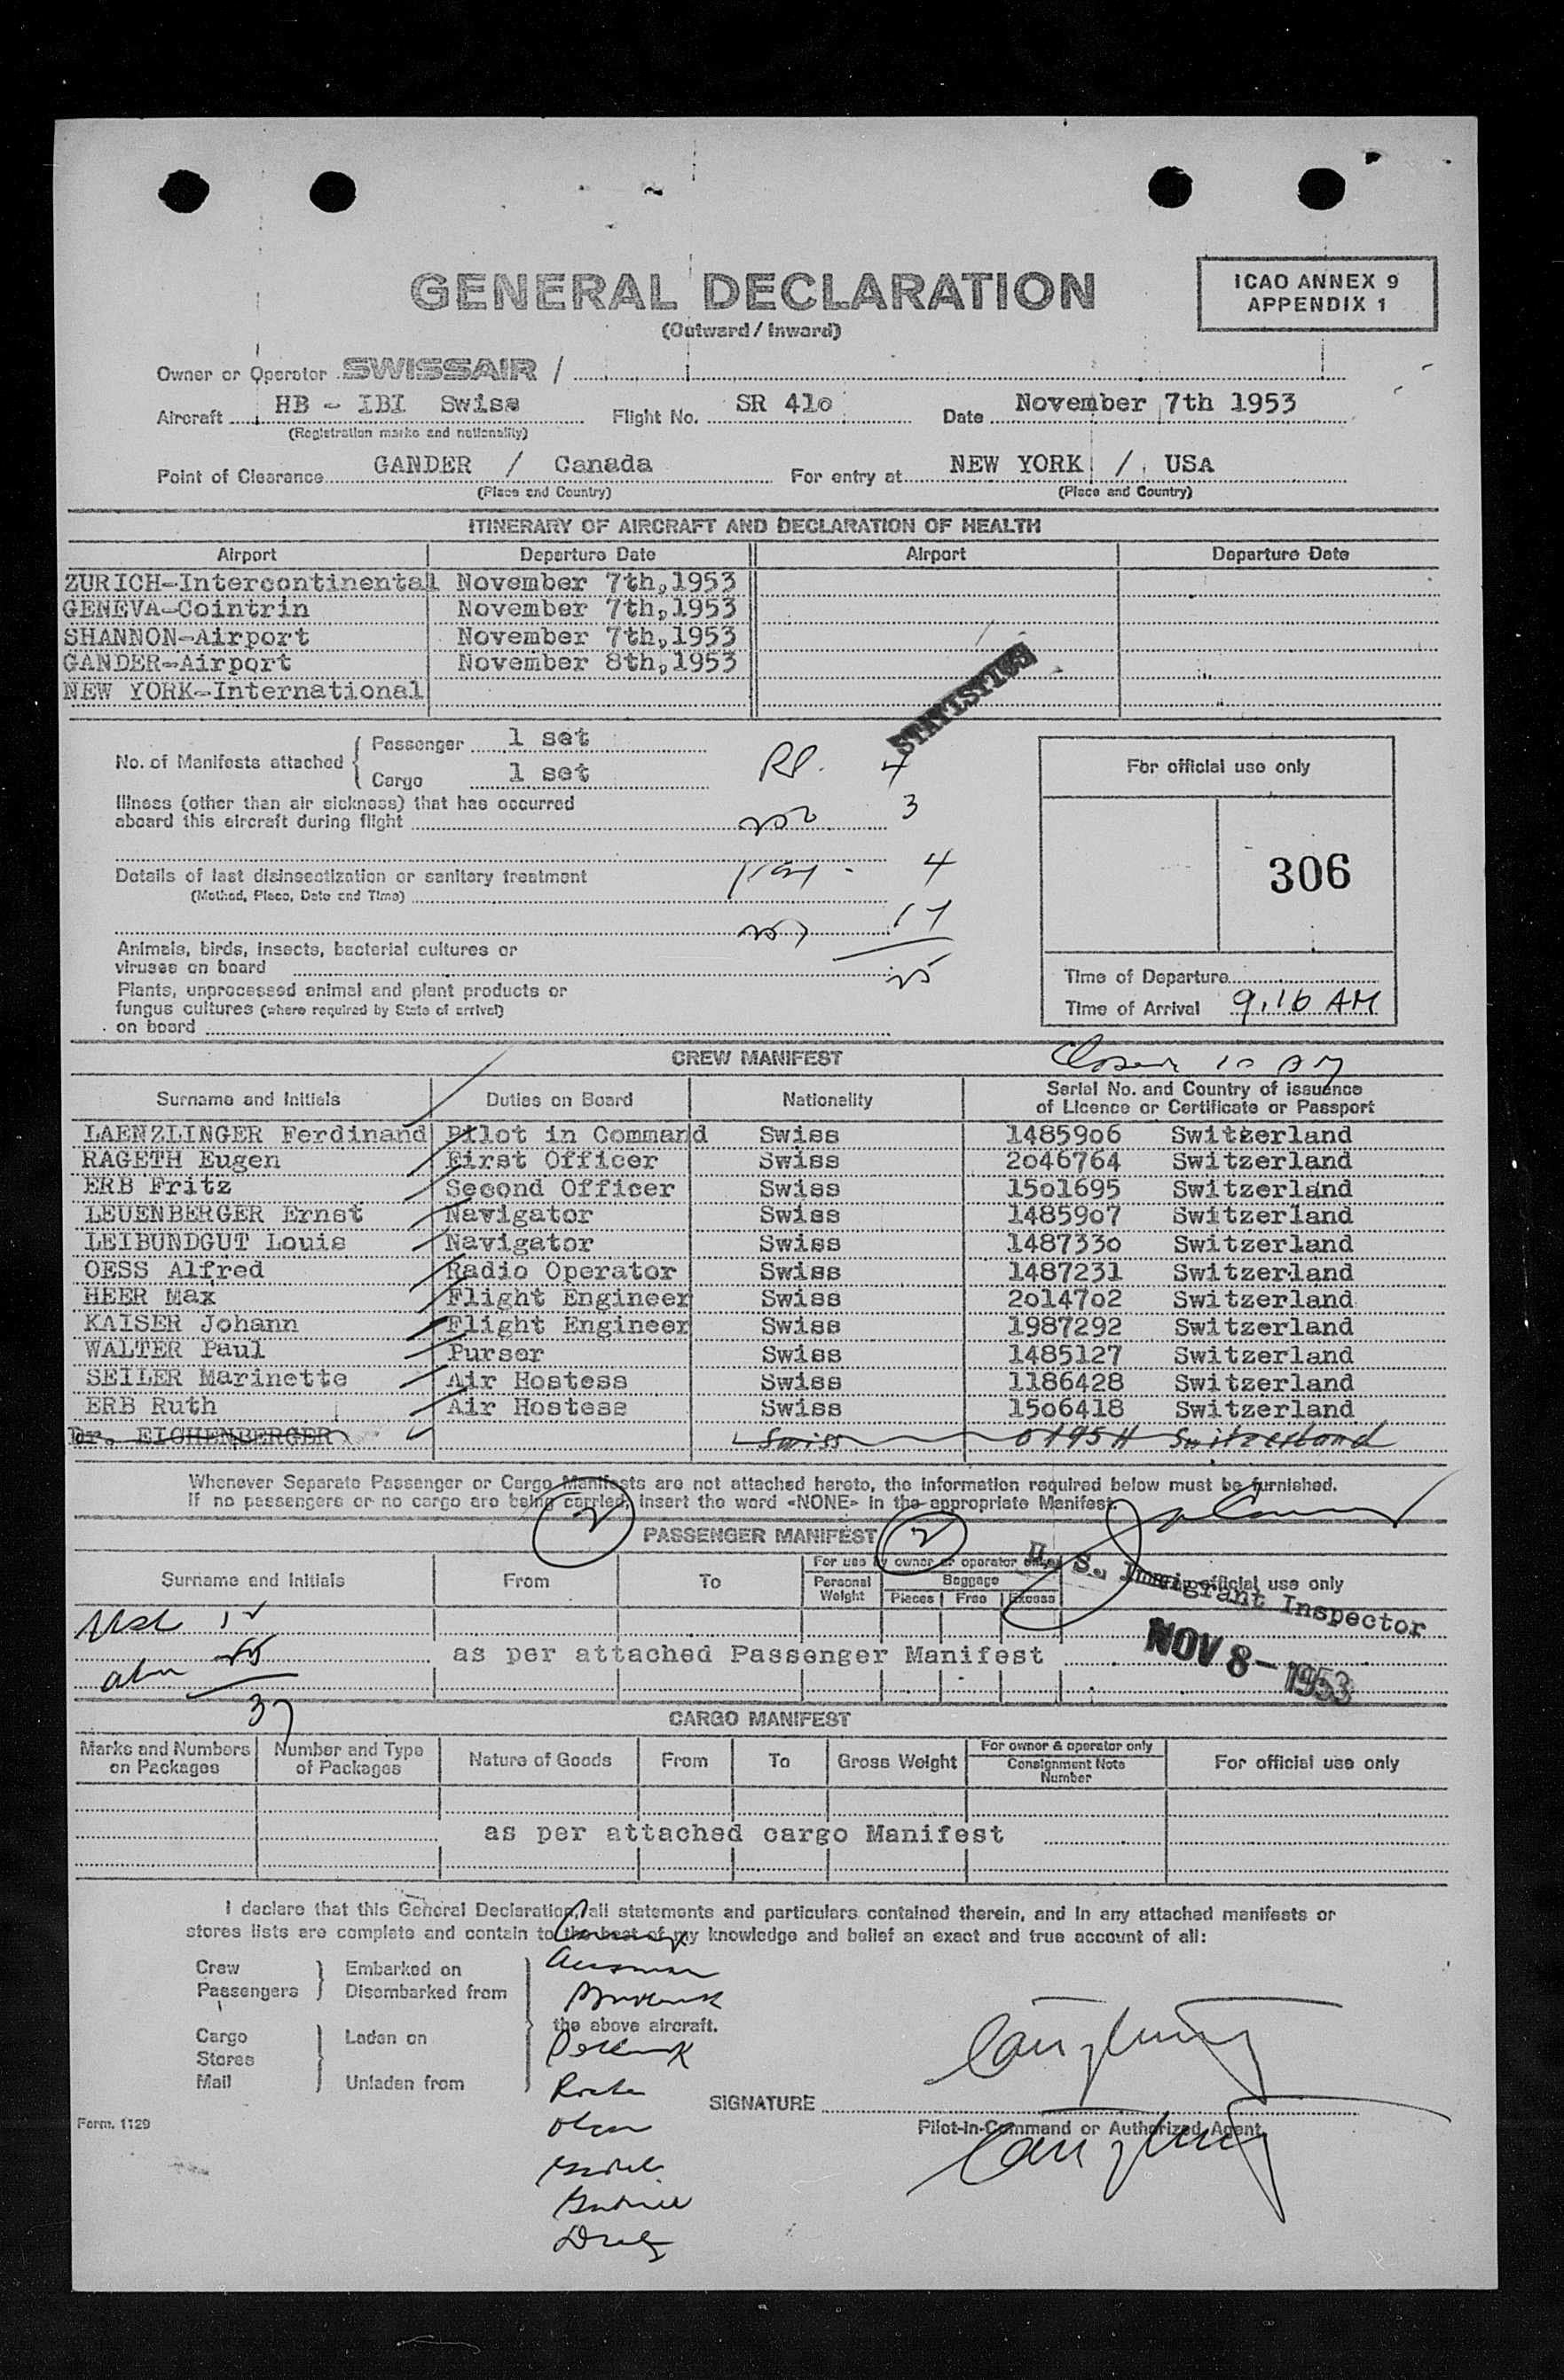 GENERAL DECLARATION
(Outward / Inward)
ICAO ANNEX 9
APPENDIX 1
Owner or Operator SWISSAIR /
Aircraft HB - IBI Swiss Flight No. SR 41o Date November 7th 1953
(Registration marks and nationality)
Point of Clearance GANDER / Canada For entry at NEW YORK / USA
(Place and Country) (Place and Country)
ITINERARY OF AIRCRAFT AND DECLARATION OF HEALTH
Airport Departure Date Airport Departure Date
ZURICH-Intercontinental November 7th,1953
GENEVA-Cointrin November 7th,1953
SHANNON-Airport November 7th,1953
GANDER-Airport November 8th,1953
NEW YORK-International
STATISTICS
No. of Manifests attached { Passenger 1 set
Cargo 1 set
4
For official use only
Illness (other than air sickness) that has occurred
aboard this aircraft during flight
3
306
Details of last disinsectization or sanitary treatment
(Method, Place, Date and Time)
4
Animals, birds, insects, bacterial cultures or
viruses on board
Plants, unprocessed animal and plant products or
fungus cultures (where required by State of arrival)
on board
Time of Departure
Time of Arrival 9.16 AM
CREW MANIFEST
Surname and Initials Duties on Board Nationality Serial No. and Country of issuance
of Licence or Certificate or Passport
LAENZLINGER Ferdinand Pilot in Command Swiss 14859o6 Switzerland
RAGETH Eugen First Officer Swiss 2o46764 Switzerland
ERB Fritz Second Officer Swiss 15o1695 Switzerland
LEUENBERGER Ernst Navigator Swiss 14859o7 Switzerland
LEIBUNDGUT Louis Navigator Swiss 148733o Switzerland
OESS Alfred Radio Operator Swiss 1487231 Switzerland
HEER Max Flight Engineer Swiss 2o147o2 Switzerland
KAISER Johann Flight Engineer Swiss 1987292 Switzerland
WALTER Paul Purser Swiss 1485127 Switzerland
SEILER Marinette Air Hostess Swiss 1186428 Switzerland
ERB Ruth Air Hostess Swiss 15o6418 Switzerland
Dr. EICHENBERGER Swiss Switzerland
Whenever Separate Passenger or Cargo Manifests are not attached hereto, the information required below must be furnished.
If no passengers or no cargo are being carried, insert the word «NONE» in the appropriate Manifest.
2 2
PASSENGER MANIFEST
Surname and Initials From To For use by owner or operator only
Personal Weight Baggage
Pieces Free Excess
For official use only
U. S. Immigrant Inspector
NOV 8 - 1953
as per attached Passenger Manifest
37
CARGO MANIFEST
Marks and Numbers on Packages Number and Type of Packages Nature of Goods From To Gross Weight For owner & operator only
Consignment Note Number
For official use only
as per attached cargo Manifest
I declare that this General Declaration, all statements and particulars contained therein, and in any attached manifests or
stores lists are complete and contain to the best of my knowledge and belief an exact and true account of all:
Crew } Embarked on
Passengers } Disembarked from
the above aircraft.
Cargo } Laden on
Stores
Mail } Unladen from
SIGNATURE
Pilot-in-Command or Authorized Agent
Form. 1129